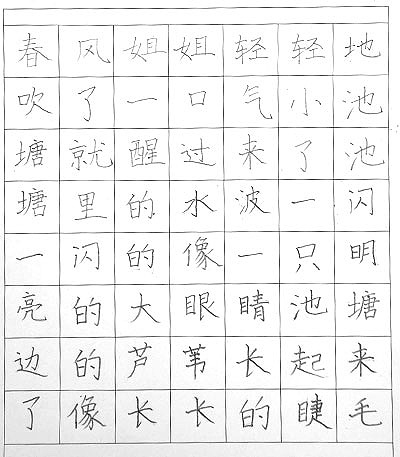 春风姐姐轻轻地
吹了一口气小池
塘就醒过来了池
塘里的水波一闪
一闪的像一只明
亮的大眼睛池塘
边的芦苇长起来
了像长长的睫毛